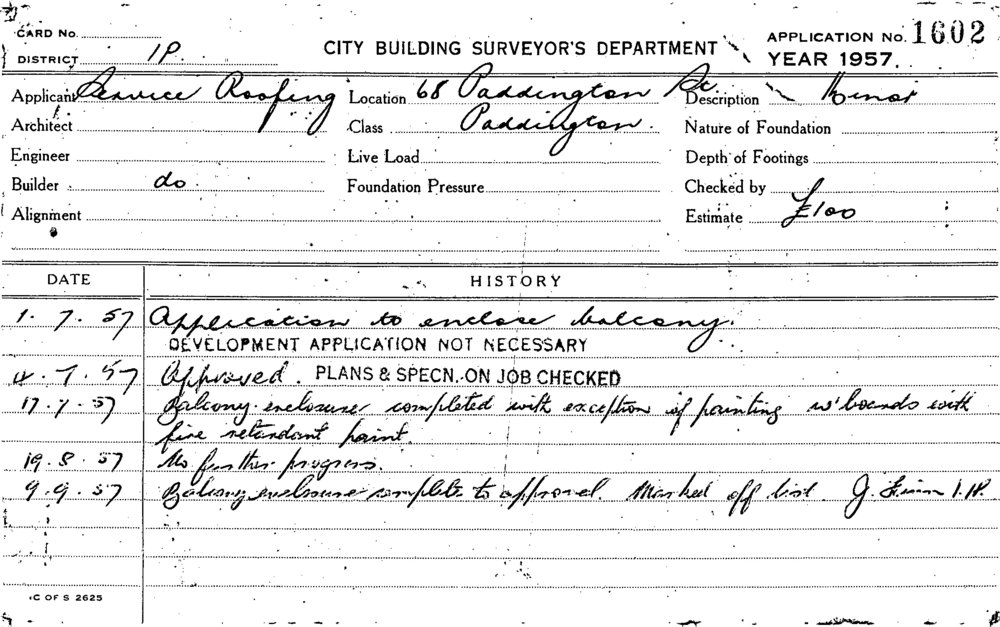 CARD No.
DISTRICT 1P.
CITY BUILDING SURVEYOR'S DEPARTMENT
APPLICATION No. 1602
YEAR 1957.
Applicant Service Roofing
Location 68 Paddington St.
Description Minor
Architect
Class Paddington.
Nature of Foundation
Engineer
Live Load
Depth of Footings
Builder do.
Foundation Pressure
Checked by
Alignment
Estimate £100
DATE
HISTORY
1. 7. 57 Application to enclose balcony.
DEVELOPMENT APPLICATION NOT NECESSARY
4. 7. 57 Approved. PLANS & SPECN. ON JOB CHECKED
17. 7. 57 Balcony enclosure completed with exception of painting w'boards with
fire retardant paint.
19. 8. 57 No further progress.
9. 9. 57 Balcony enclosure complete to approval. Marked off list. J. 1.P.
C OF S 2625